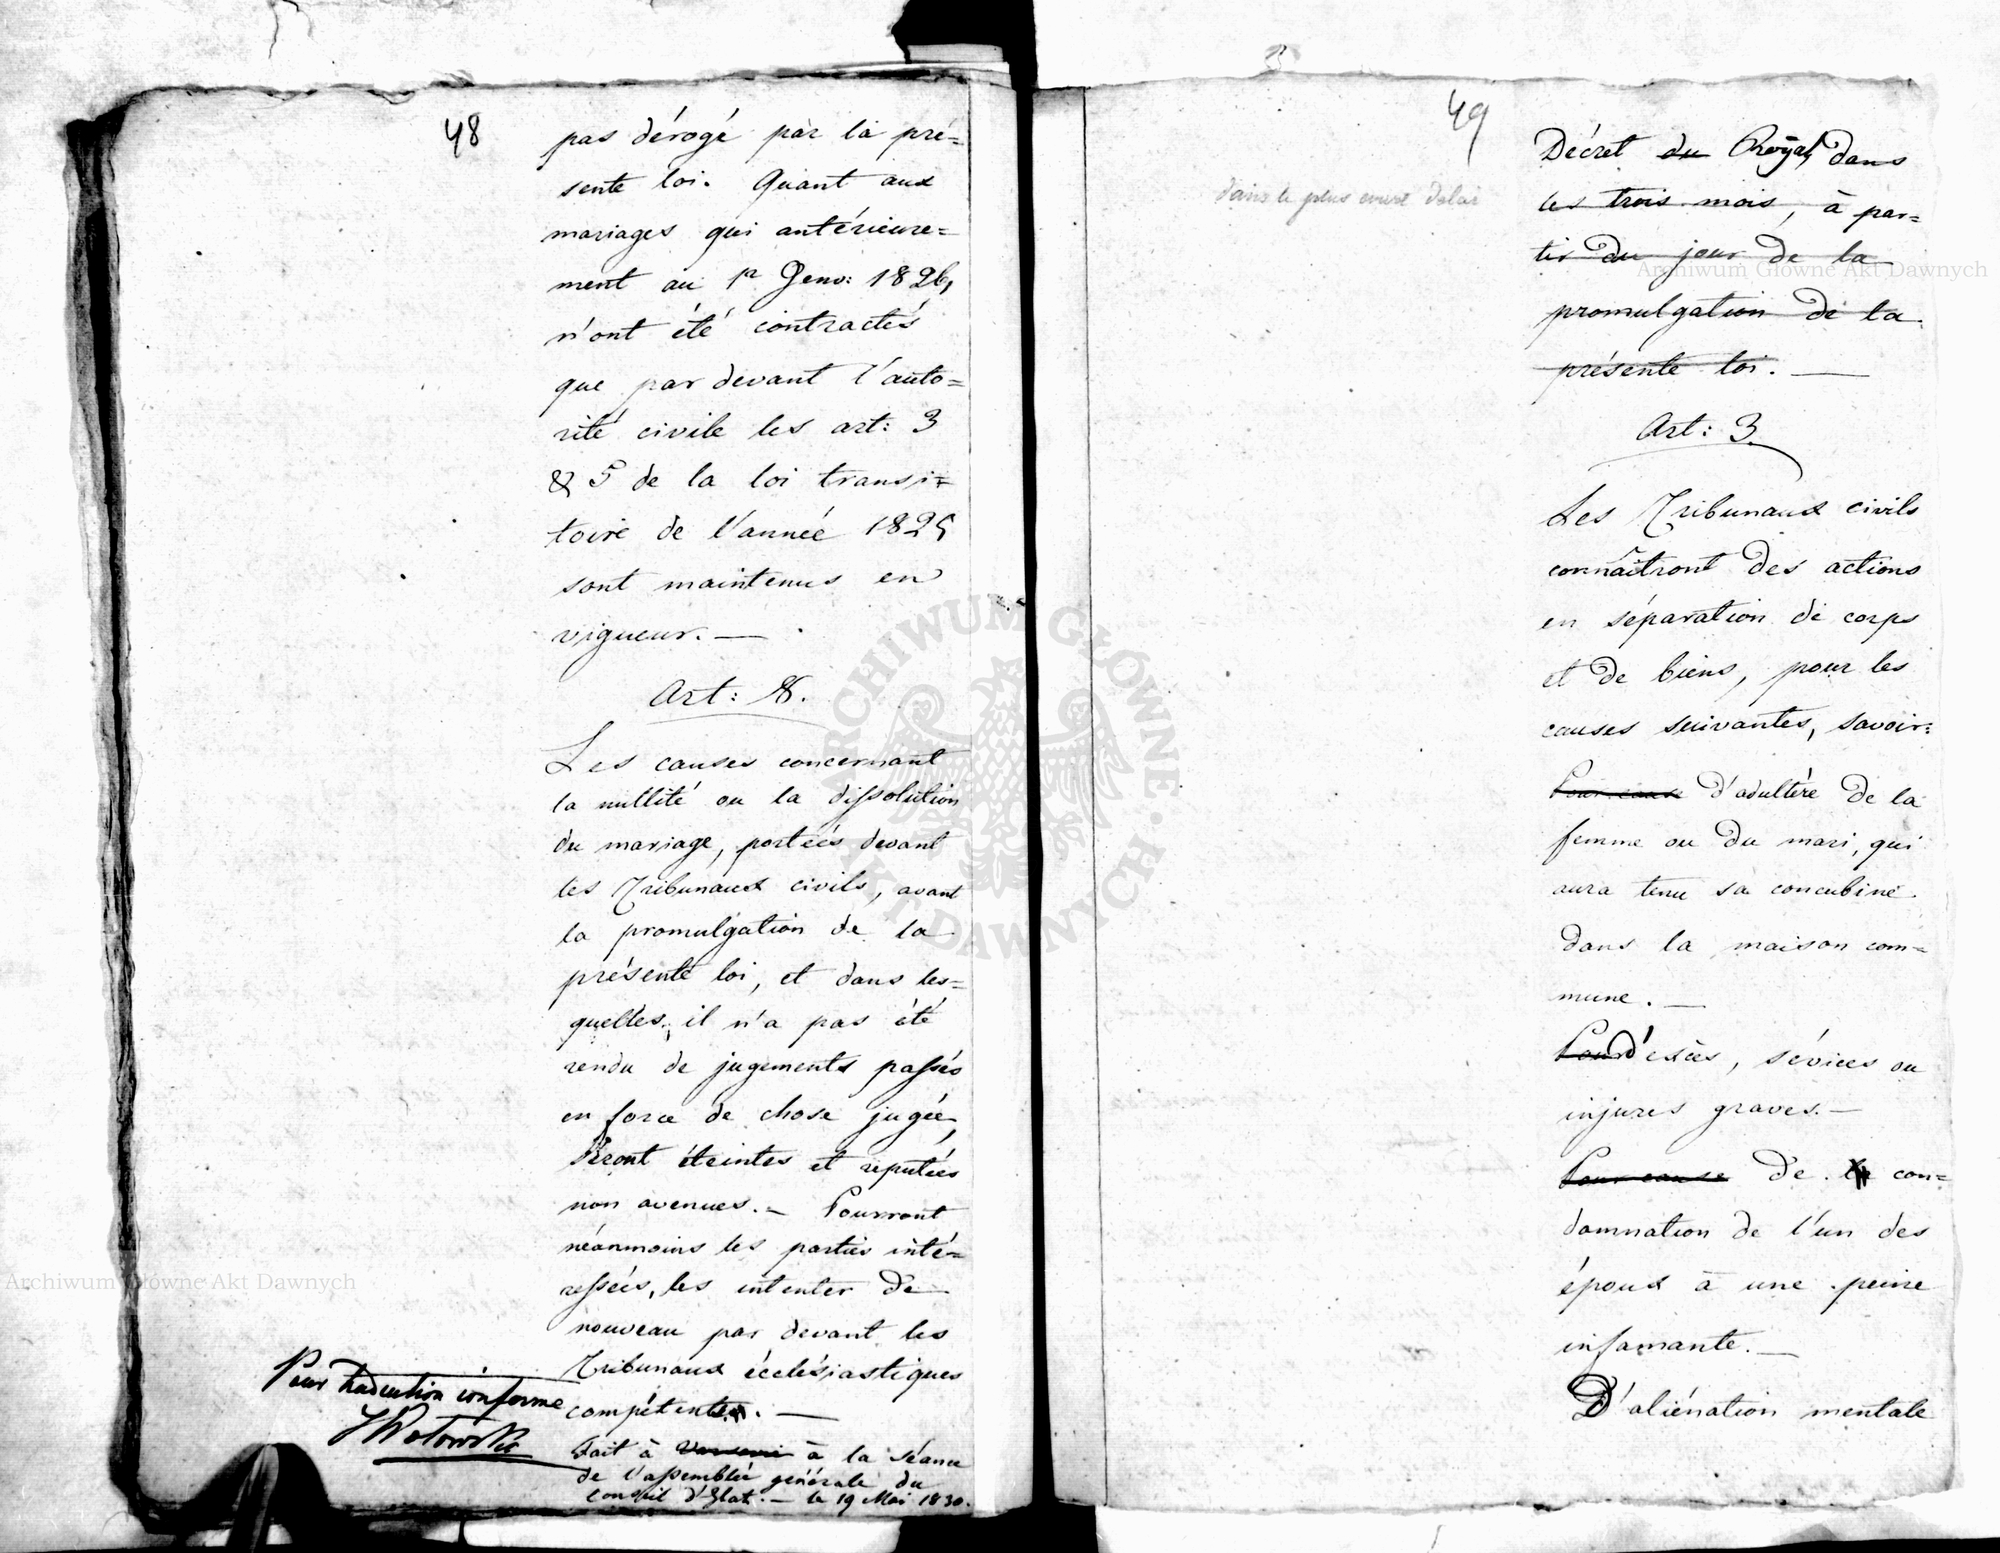 48
pas dérogé par la pré=
sente loi. Quant aux
mariages qui antérieure=
ment au 1r Janv: 1826,
n'ont été contractés
que par devant l'auto=
rité civile les art: 3
& 5 de la loi transi=
toire de l'année 1825
sont maintenus en
vigueur. —
Art: 8.
Les causes concernant
la nullité ou la dissolution
du mariage, portées devant
les Tribunaux civils, avant
la promulgation de la
présente loi, et dans les=
quelles, il n'a pas été
rendu de jugements passés
en force de chose jugée,
seront éteintes et reputées
non avenues. — Pourront
néanmoins les parties inté=
ressées, les intenter de
nouveau par devant les
Tribunaux écclésiastiques
compétents. —
Fait à Varsovie à la séance
de l'assemblée générale du
Conseil d'Etat. — le 19 Mai 1830.
Pour traduction conforme
49
Décret du Royal, dans
dans le plus court delai
les trois mois, à par=
tir du jour de la
promulgation de la
présente loi. —
Art: 3
Les Tribunaux civils
connaîtront des actions
en séparation de corps
et de biens, pour les
causes suivantes, savoir:
Pour cause d'adultère de la
femme ou du mari, qui
aura tenu sa concubine
dans la maison com=
mune. —
Pour d'excès, sévices ou
injures graves. —
Pour cause de la con=
damnation de l'un des
époux à une peine
infamante. —
D'aliénation mentale
Archiwum Główne Akt Dawnych
Archiwum Główne Akt Dawnych
ARCHIWUM GŁÓWNE AKT DAWNYCH